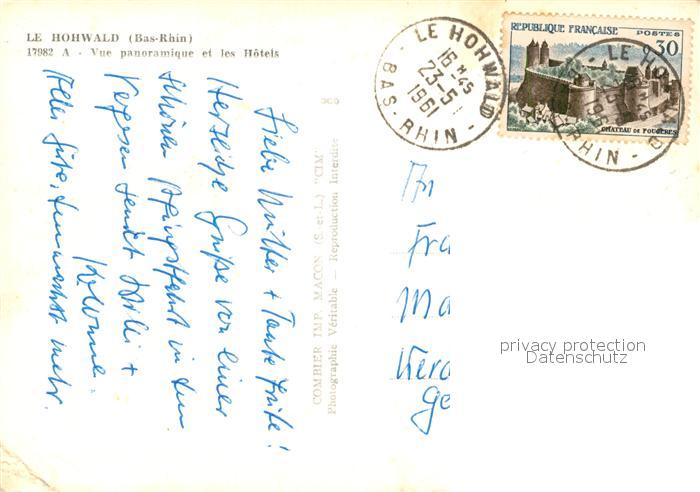 LE HOHWALD (Bas-Rhin)
17982 A - Vue panoramique et les Hôtels
Liebe Mutter + Tante Frite!
Herzliche Grüße von einer
schönen Pfingstfahrt in den
Vogesen sendet Willi +
Alles Gute, demnächst mehr.
COMBIER IMP. MACON (S.-et-L.) "CIM"
Photographie Véritable — Reproduction Interdite
LE HOHWALD
16 H 45
23-5
1961
BAS-RHIN
REPUBLIQUE FRANÇAISE
POSTES
30
CHATEAU DE FOUGÈRES
LE HOHWALD
RHIN
An
Fra
Ma
Ge
privacy protection
Datenschutz